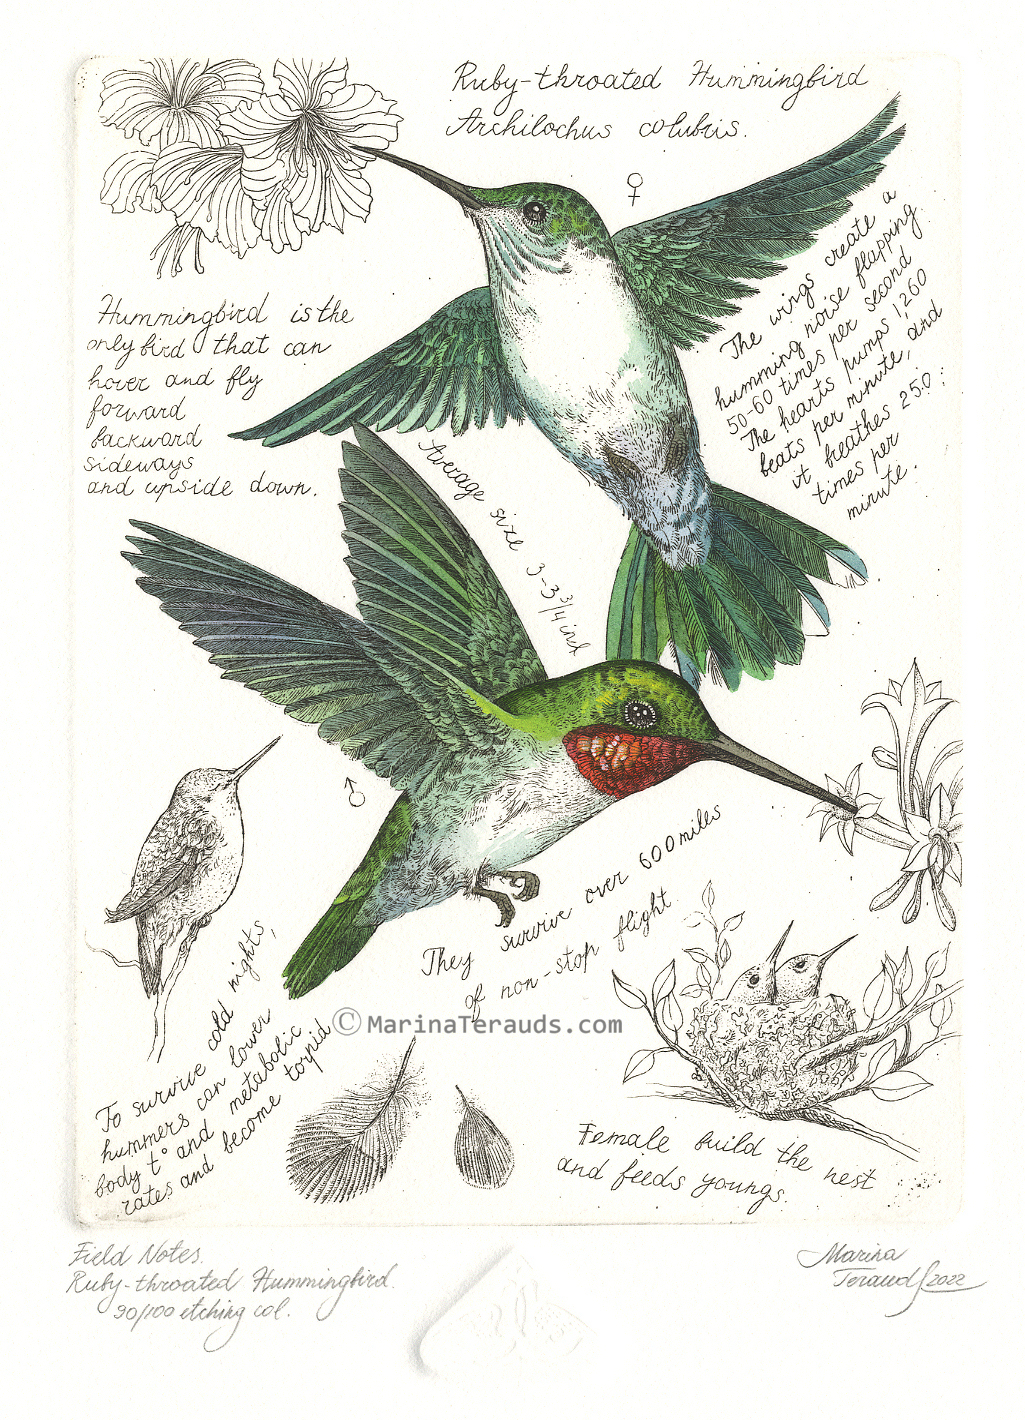 Ruby-throated Hummingbird
Archilochus colubris.
♀
The wings create a
humming noise flapping
50-60 times per second
The hearts pumps 1,260
beats per minute, and
it breathes 250
times per
minute.
Hummingbird is the
only bird that can
hover and fly
forward
backward
sideways
and upside down.
Average size 3-3 3/4 inch
♂
They survive over 600 miles
of non-stop flight.
©MarinaTerauds.com
To survive cold nights,
hummers can lower
body t° and metabolic
rates and become torpid
Female build the nest
and feeds youngs.
Field Notes.
Ruby-throated Hummingbird.
90/100 etching col.
Marina
Terauds 2022